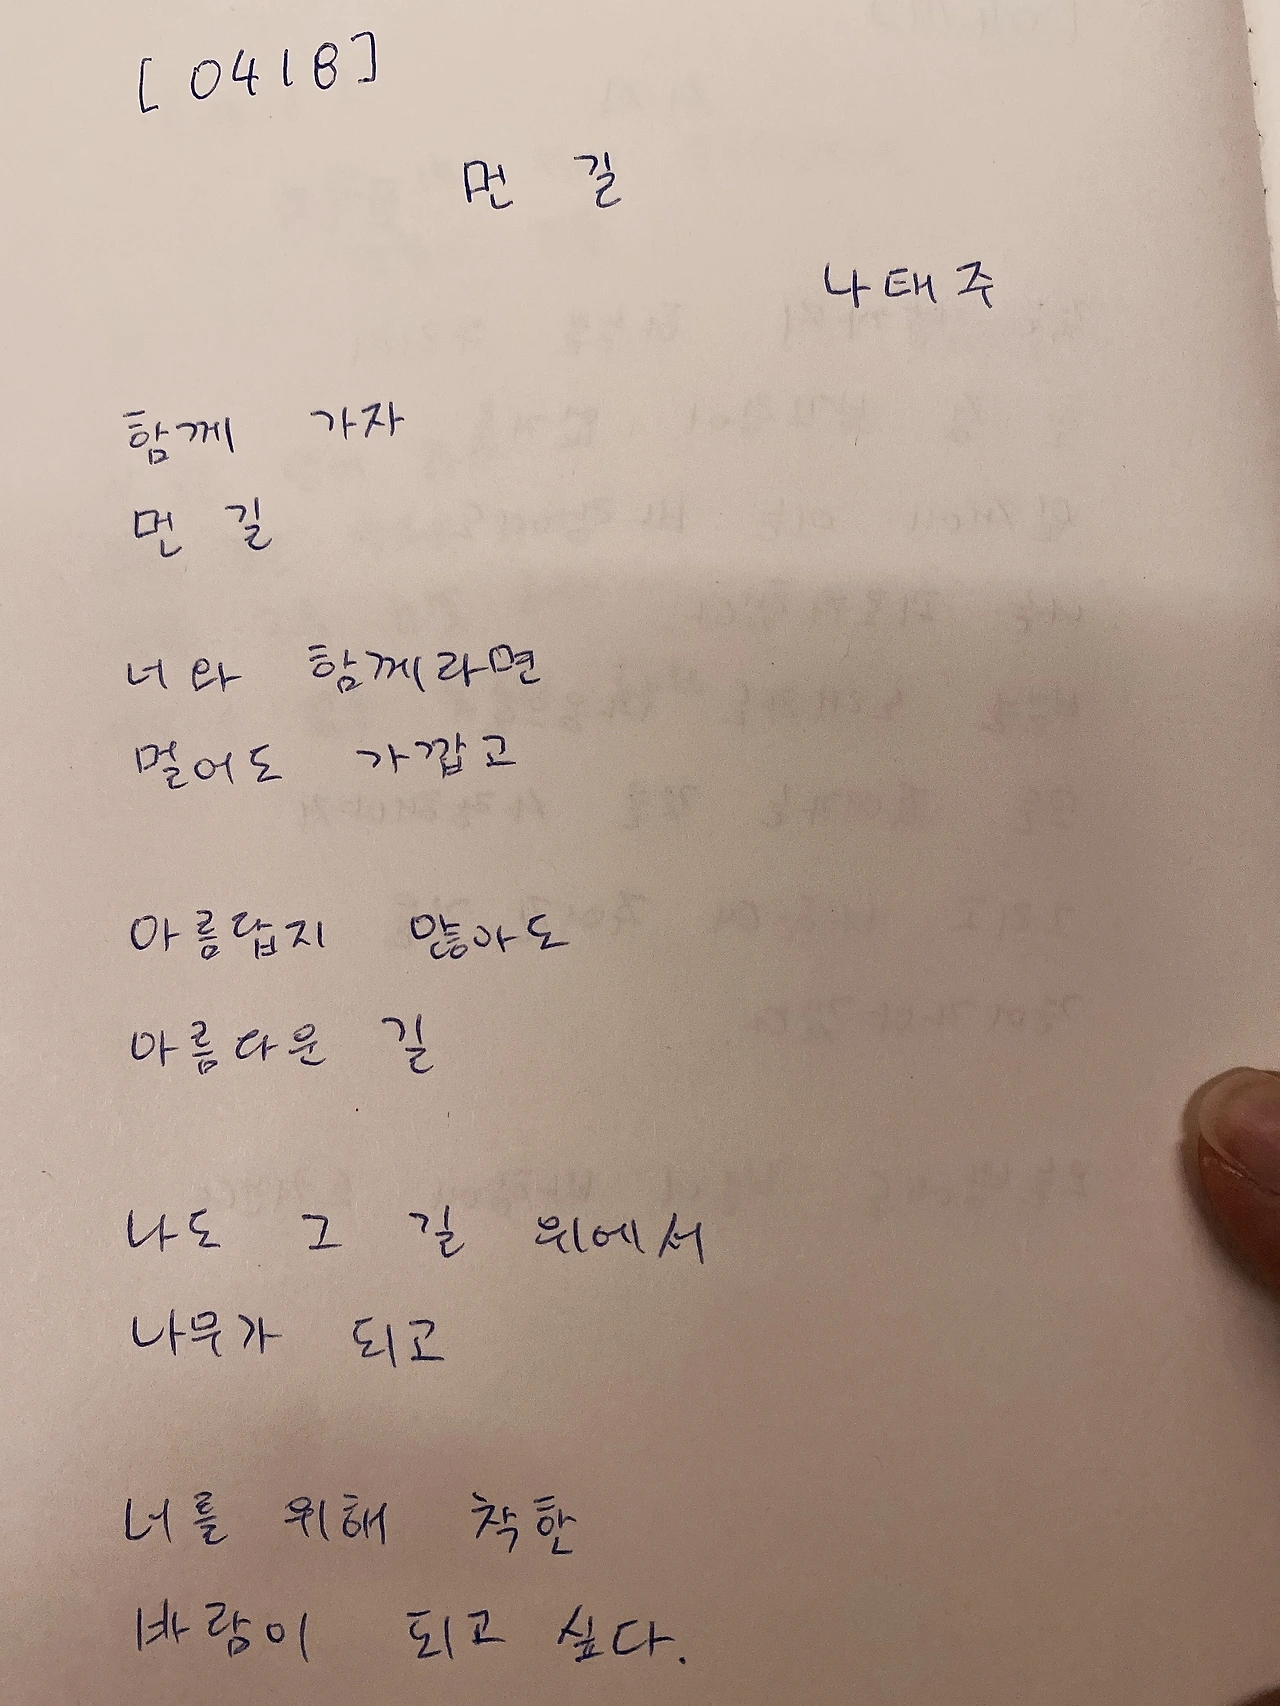 [0418]
먼 길
나태주
함께 가자
먼 길
너와 함께라면
멀어도 가깝고
아름답지 않아도
아름다운 길
나도 그 길 위에서
나무가 되고
너를 위해 착한
바람이 되고 싶다.